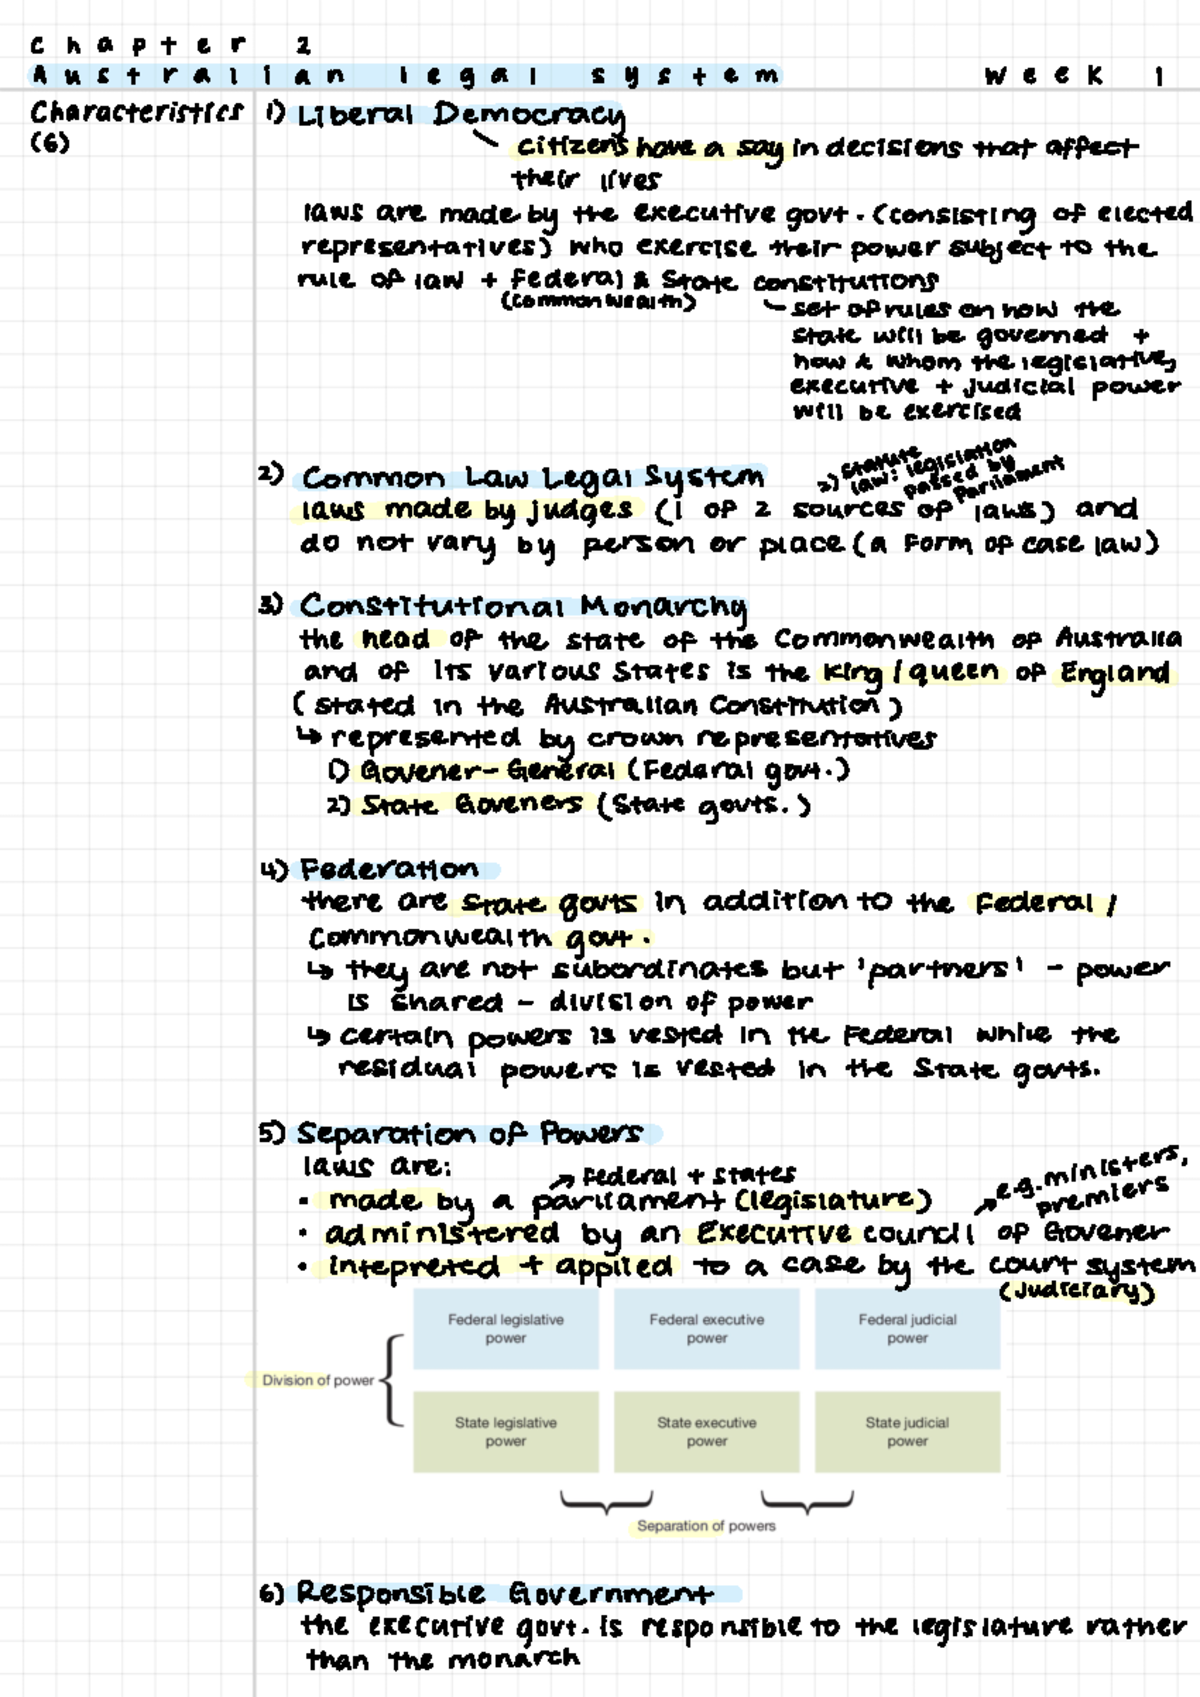 Chapter 2
Australian legal system Week 1
Characteristics (6)
1) Liberal Democracy
citizens have a say in decisions that affect
their lives
laws are made by the executive govt. (consisting of elected
representatives) who exercise their power subject to the
rule of law + Federal & State constitutions
(Commonwealth)
set of rules on how the
State will be governed +
how & whom the legislative,
executive + judicial power
will be exercised
2) Common Law Legal System
2) Statute
law: legislation
passed by
Parliament
laws made by judges (1 of 2 sources of laws) and
do not vary by person or place (a form of case law)
3) Constitutional Monarchy
the head of the state of the Commonwealth of Australia
and of its various States is the King/queen of England
(stated in the Australian Constitution)
↳ represented by crown representatives
1) Govener-General (Federal govt.)
2) State Goveners (State govts.)
4) Federation
there are state govts in addition to the Federal /
Commonwealth govt.
↳ they are not subordinates but 'partners' - power
is shared - division of power
↳ certain powers is vested in the Federal while the
residual powers is vested in the State govts.
5) Separation of Powers
laws are:
→ Federal + States
• made by a parliament (legislature)
→ e.g. ministers,
premiers
• administered by an Executive council of Govener
• intepreted + applied to a case by the court system
(Judiciary)
Federal legislative power
Federal executive power
Federal judicial power
Division of power
State legislative power
State executive power
State judicial power
Separation of powers
6) Responsible Government
the executive govt. is responsible to the legislature rather
than the monarch